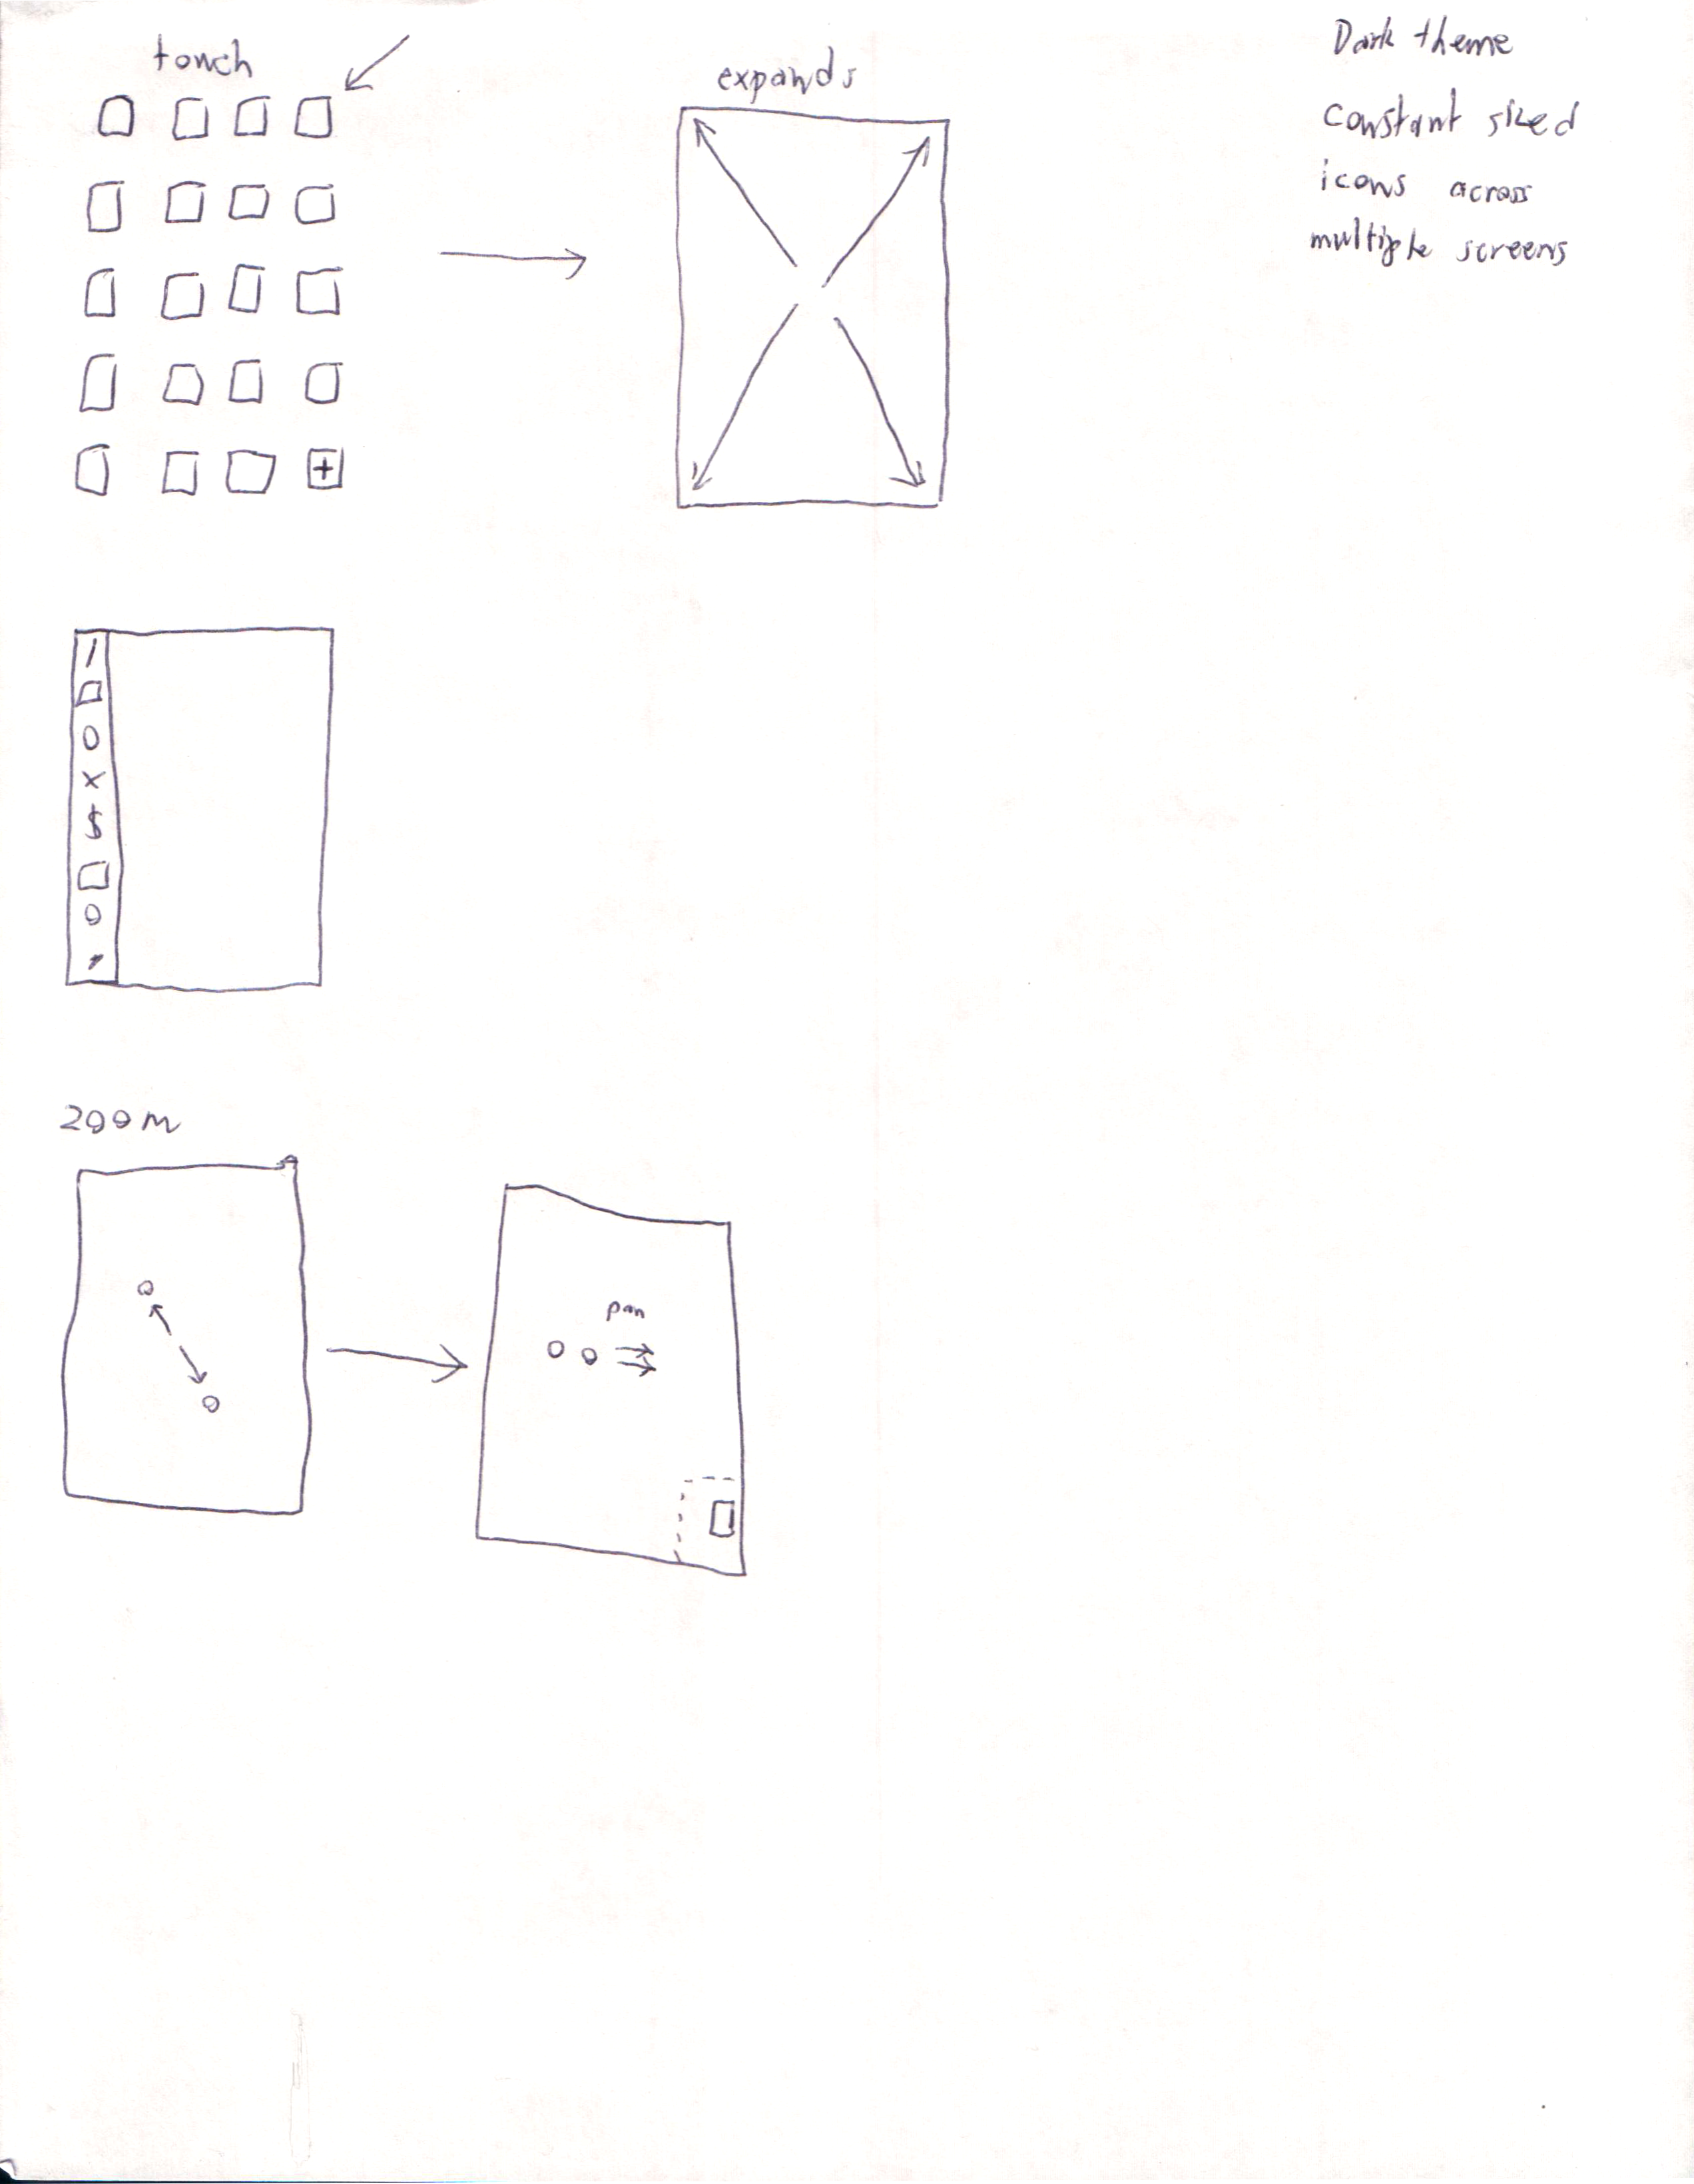 touch
expands
Dark theme
constant sized
icons across
multiple screens
+
/
O
X
$
O
zoom
pan